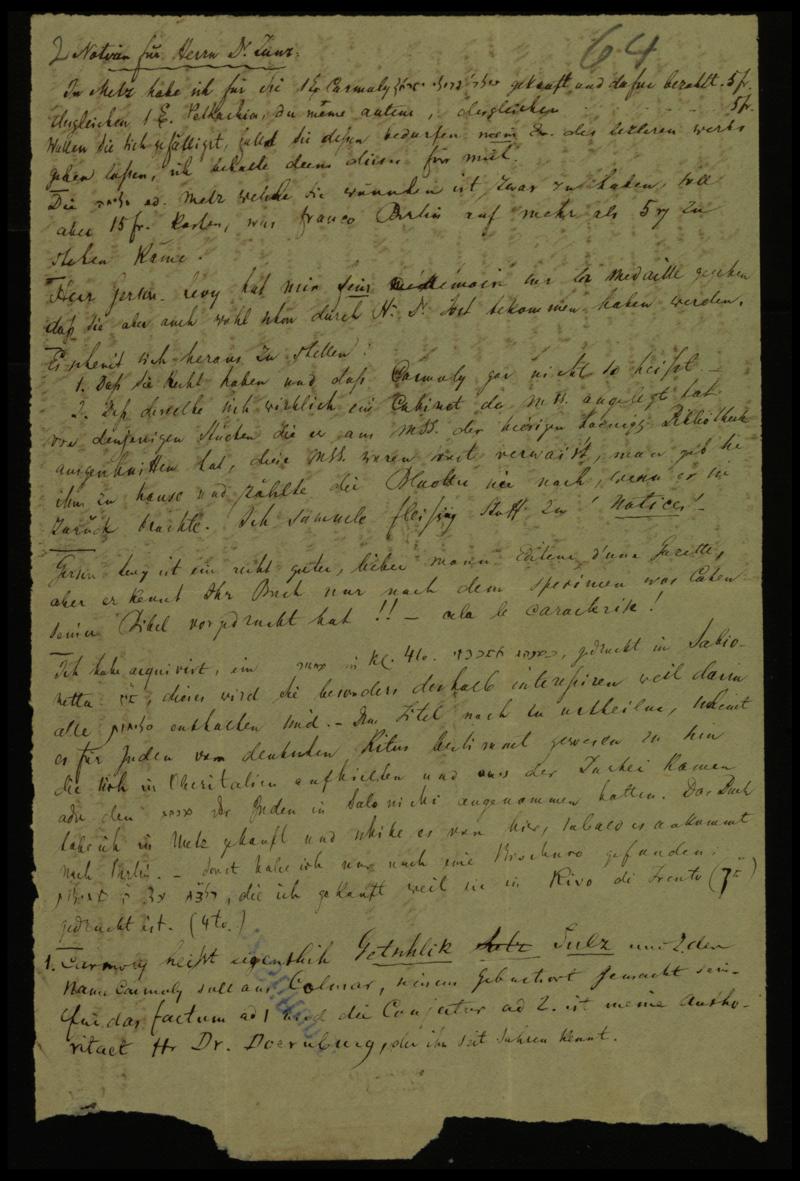 2 Notizen für Herrn Dr. Zunz. 64
In Metz habe ich für Sie 1 Ex. Carmoly gekauft und dafür bezahlt. 5 fr.
desgleichen 1 E. du même auteur, desgleichen 5 fr.
Wollen Sie sich gefälligst, falls Sie dessen bedürfen mein Ex. des letzteren werks
geben lassen, ich behalte denn dieses für mich.
Die ed. Metz welche Sie wünschen ist zwar zu haben, soll
aber 15 fr. kosten, was franco Berlin auf mehr als 5 zu
stehen käme.
Herr Gerson-Levy hat mir sein mémoire über die Medaille gegeben
das Sie aber auch wohl schon durch H. Dr. Jost bekommen haben werden.
Es scheint sich heraus zu stellen:
1. Daß Sie Recht haben und daß Carmoly gar nicht so heißt. —
2. Daß derselbe sich wirklich ein Cabinet de MSS. angelegt hat
von denjenigen Stücken die er aus MSS. der hiesigen koenigl. Bibliothek
ausgeschnitten hat, diese MSS. waren verwaist, man gab sie
ihm zu hause und zählte die Blaetter nie nach, wenn er sie
zurück brachte. Ich sammle fleißig Stoff zu Notices! —
Gerson Levy ist ein recht guter, lieber mann Editeur d'une Gazette,
aber er kennt Ihr Buch nur nach dem specimen was Cahen
seiner Bibel vorgedruckt hat!! — cela le caractérise!
Ich habe acquirirt, ein מחזור in kl. 4to. gedruckt in Sabio-
netta, dieses wird Sie besonders deshalb interessiren weil darin
alle enthalten sind. — Dem Titel nach zu urtheilen, scheint
es für Juden vom deutschen Ritus bestimmt gewesen zu sein
die sich in Oberitalien aufhielten und aus der Türkei kamen
oder den der Juden in Salonichi angenommen hatten. Das Buch
habe ich in Metz gekauft und schicke es von hier, sobald es ankommt
nach Berlin. — Sonst habe ich nur noch eine Brochure gefunden:
die ich gekauft weil sie in Riva di Trento
gedruckt ist. (4to.)
1. Carmoly heißt eigentlich Getschlik Sulz und den
Name Carmoly soll aus Colmar, seinem Geburtsort gemacht sein —
für das factum ad 1 und die Conjectur ad 2. ist meine Autho-
ritaet Hr Dr. Doernburg, der ihn seit Jahren kennt.